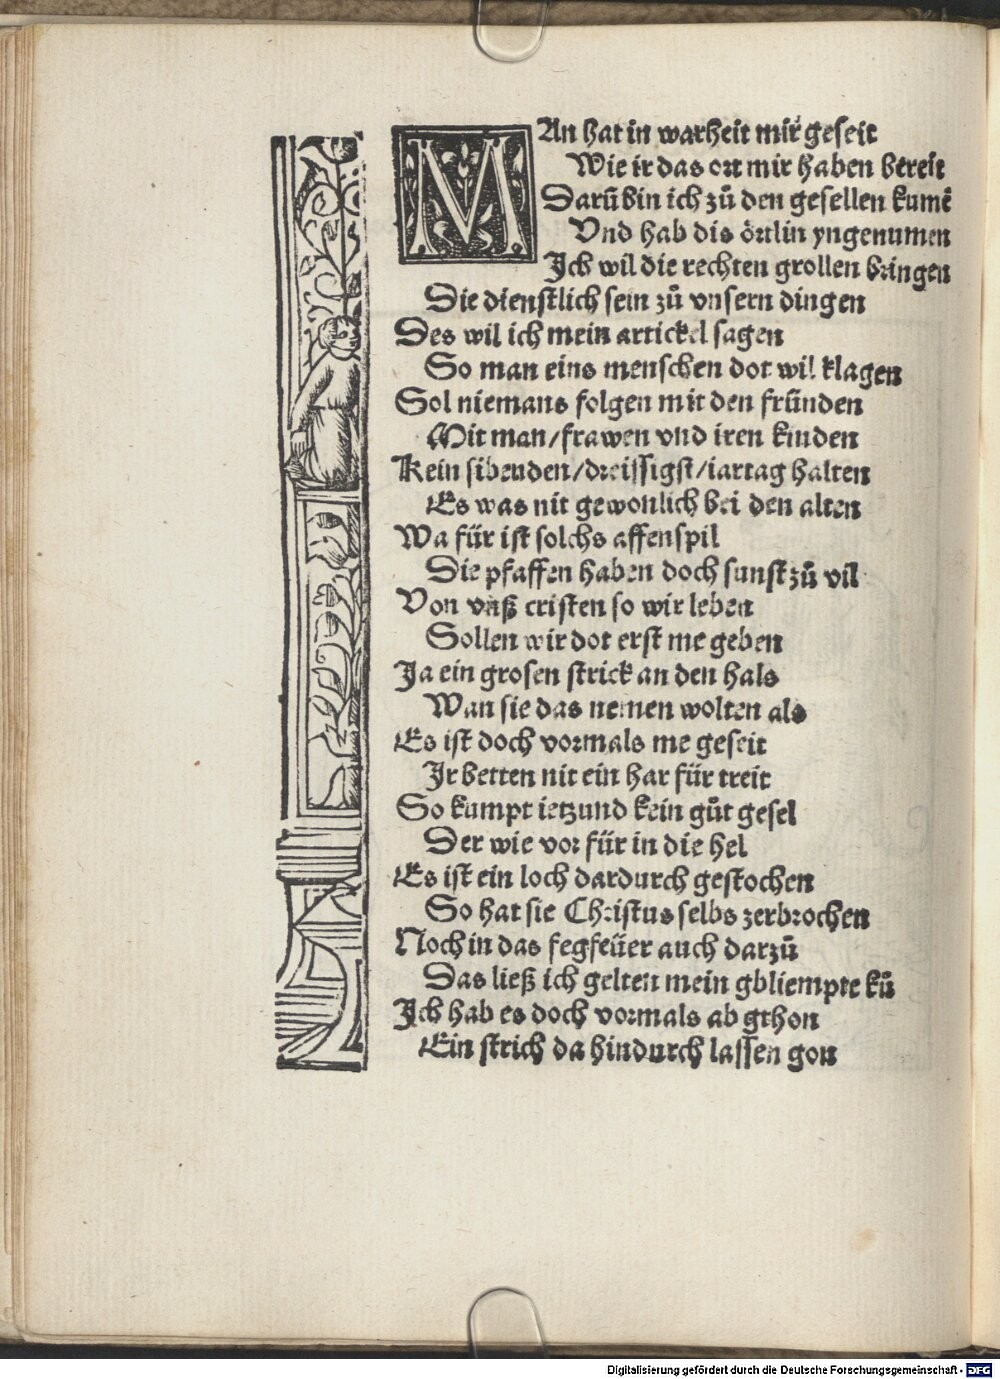 MAn hat in warheit mir geseit
Wie ir das ort mir haben bereit
Darũ bin ich zů den gesellen kumẽ
Vnd hab dis örtlin yngenumen
Ich wil die rechten grollen bringen
Die dienstlich sein zů vnsern dingen
Des wil ich mein artickel sagen
So man eins menschen dot wil klagen
Sol niemans folgen mit den fründen
Mit man/frawen vnd iren kinden
Kein sibenden/dreissigst/iartag halten
Es was nit gewonlich bei den alten
Wa für ist solchs affenspil
Die pfaffen haben doch sunst zů vil
Von vnß cristen so wir leben
Sollen wir dot erst me geben
Ja ein grosen strick an den hals
Wan sie das nemen wolten als
Es ist doch vormals me geseit
Ir betten nit ein har für treit
So kumpt ietzund kein gůt gesel
Der wie vor für in die hel
Es ist ein loch dardurch gestochen
So hat sie Christus selbs zerbrochen
Noch in das fegfeüer auch darzů
Das ließ ich gelten mein gbliempte ků
Ich hab es doch vormals ab gthon
Ein strich da hindurch lassen gon
Digitalisierung gefördert durch die Deutsche Forschungsgemeinschaft - DFG